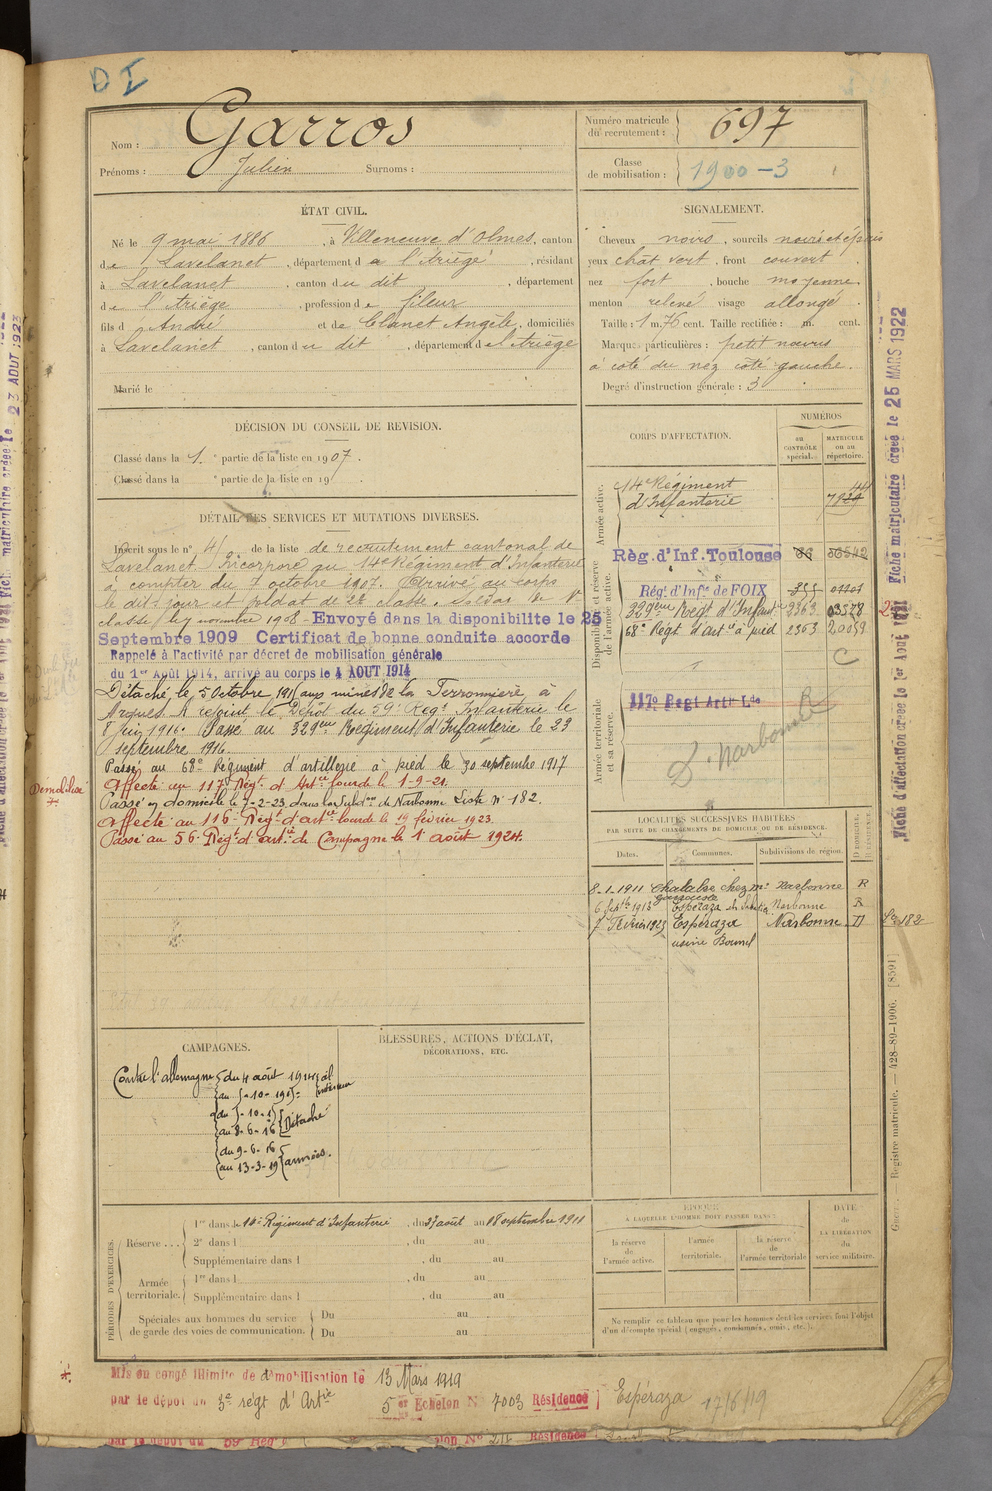 D I
Nom : Garros
Prénoms : Julien Surnoms :
Numéro matricule du recrutement : 697
Classe de mobilisation : 1900 - 3
ÉTAT CIVIL.
Né le 9 mai 1886, à Villeneuve d'Olmes, canton
de Lavelanet, département de l'Ariège, résidant
à Lavelanet, canton du dit, département
de l'Ariège, profession de fileur
fils d André et de Clanet Angèle, domiciliés
à Lavelanet, canton du dit, département de l'Ariège
Marié le
SIGNALEMENT.
Cheveux noirs, sourcils noirs et épais
yeux chât vert, front couvert
nez fort, bouche moyenne
menton relevé visage allongé
Taille : 1 m. 76 cent. Taille rectifiée : m. cent.
Marques particulières : petit nœvus
à côté du nez côté gauche.
Degré d'instruction générale : 3
DÉCISION DU CONSEIL DE REVISION.
Classé dans la 1. e partie de la liste en 1907.
Classé dans la e partie de la liste en 19
DÉTAIL DES SERVICES ET MUTATIONS DIVERSES.
Inscrit sous le n° 4 de la liste de recrutement cantonal de
Lavelanet. Incorporé au 14e Régiment d'Infanterie
à compter du 7 octobre 1907. Arrivé au corps
le dit jour et soldat de 2e classe. Soldat de 1e
classe le 7 novembre 1908 - Envoyé dans la disponibilité le 25
Septembre 1909 Certificat de bonne conduite accordé
Rappelé à l'activité par décret de mobilisation générale
du 1er Août 1914, arrivé au corps le 4 AOUT 1914
Détaché le 5 Octobre 191 aux mines de la Ferronnière à
Arques. A rejoint le Dépôt du 59e Régt Infanterie le
8 Juin 1916. Passé au 329eme Régiment d'Infanterie le 23
septembre 1916.
Passé au 68e Régiment d'artillerie à pied le 30 septembre 1917
Affecté au 117e Régt. d'Artie lourde le 1-9-21.
Passé en domicile le 7-2-23 dans la Subdon de Narbonne Liste n° 182.
Affecté au 116e Régt d'artie lourde le 19 février 1923.
Passé au 56e Régt d'artie de Campagne le 1er août 1924.
Démobilisé
CORPS D'AFFECTATION.
NUMÉROS
au CONTRÔLE spécial.
MATRICULE ou au répertoire.
Armée active.
14e Régiment
d'Infanterie
Disponibilité et réserve de l'armée active.
Rég. d'Inf. Toulouse
Régt. d'Infie de FOIX
329eme Régt d'Infanie 2363 03578
68e Régt d'artie à pied 2363 20059
C
Armée territoriale et sa réserve.
117e Regt Artie Lde
D. Narbonne
LOCALITÉS SUCCESSIVES HABITÉES
PAR SUITE DE CHANGEMENTS DE DOMICILE OU DE RÉSIDENCE.
Dates. Communes. Subdivisions de région. D DOMICILE. R RÉSIDENCE.
8-1-1911 Chalabre chez Mr Narbonne R
6 1913 Espéraza Narbonne R
7 Février 1923 Espéraza Narbonne D
usine
Ln 182
CAMPAGNES.
Contre l'allemagne du 4 août 1914 à l'
au 5-10-1915 = intérieur
du 5-10-15
au 8-6-16 Détaché
du 9-6-16
au 13-3-19 armées.
BLESSURES, ACTIONS D'ÉCLAT,
DÉCORATIONS, ETC.
PÉRIODES D'EXERCICES.
Réserve ... 1re dans le 14e Régiment d'Infanterie, du 27 août au 18 septembre 1911
2e dans l, du au
Supplémentaire dans l, du au
Armée territoriale. 1re dans l, du au
Supplémentaire dans l, du au
Spéciales aux hommes du service
de garde des voies de communication.
Du au
Du au
ÉPOQUE
A LAQUELLE L'HOMME DOIT PASSER DANS :
la réserve de l'armée active.
l'armée territoriale.
la réserve de l'armée territoriale
DATE de LA LIBÉRATION du service militaire.
Ne remplir ce tableau que pour les hommes dont les services font l'objet
d'un décompte spécial (engagés, condamnés, omis, etc.).
Mis en congé illimité de démobilisation le 13 Mars 1919
par le dépôt du 3e régt d'Artie 5e Echelon N° 7003 Résidence Espéraza 17/6/19
par le dépôt du 59 Rég
Résidence
Fiche matriculaire créée le 25 MARS 1922
Fiche d'affectation créée le 1er Août
Registre matricule. — 428-89-1906. [8591]
matriculaire créée le 23 AOUT 192